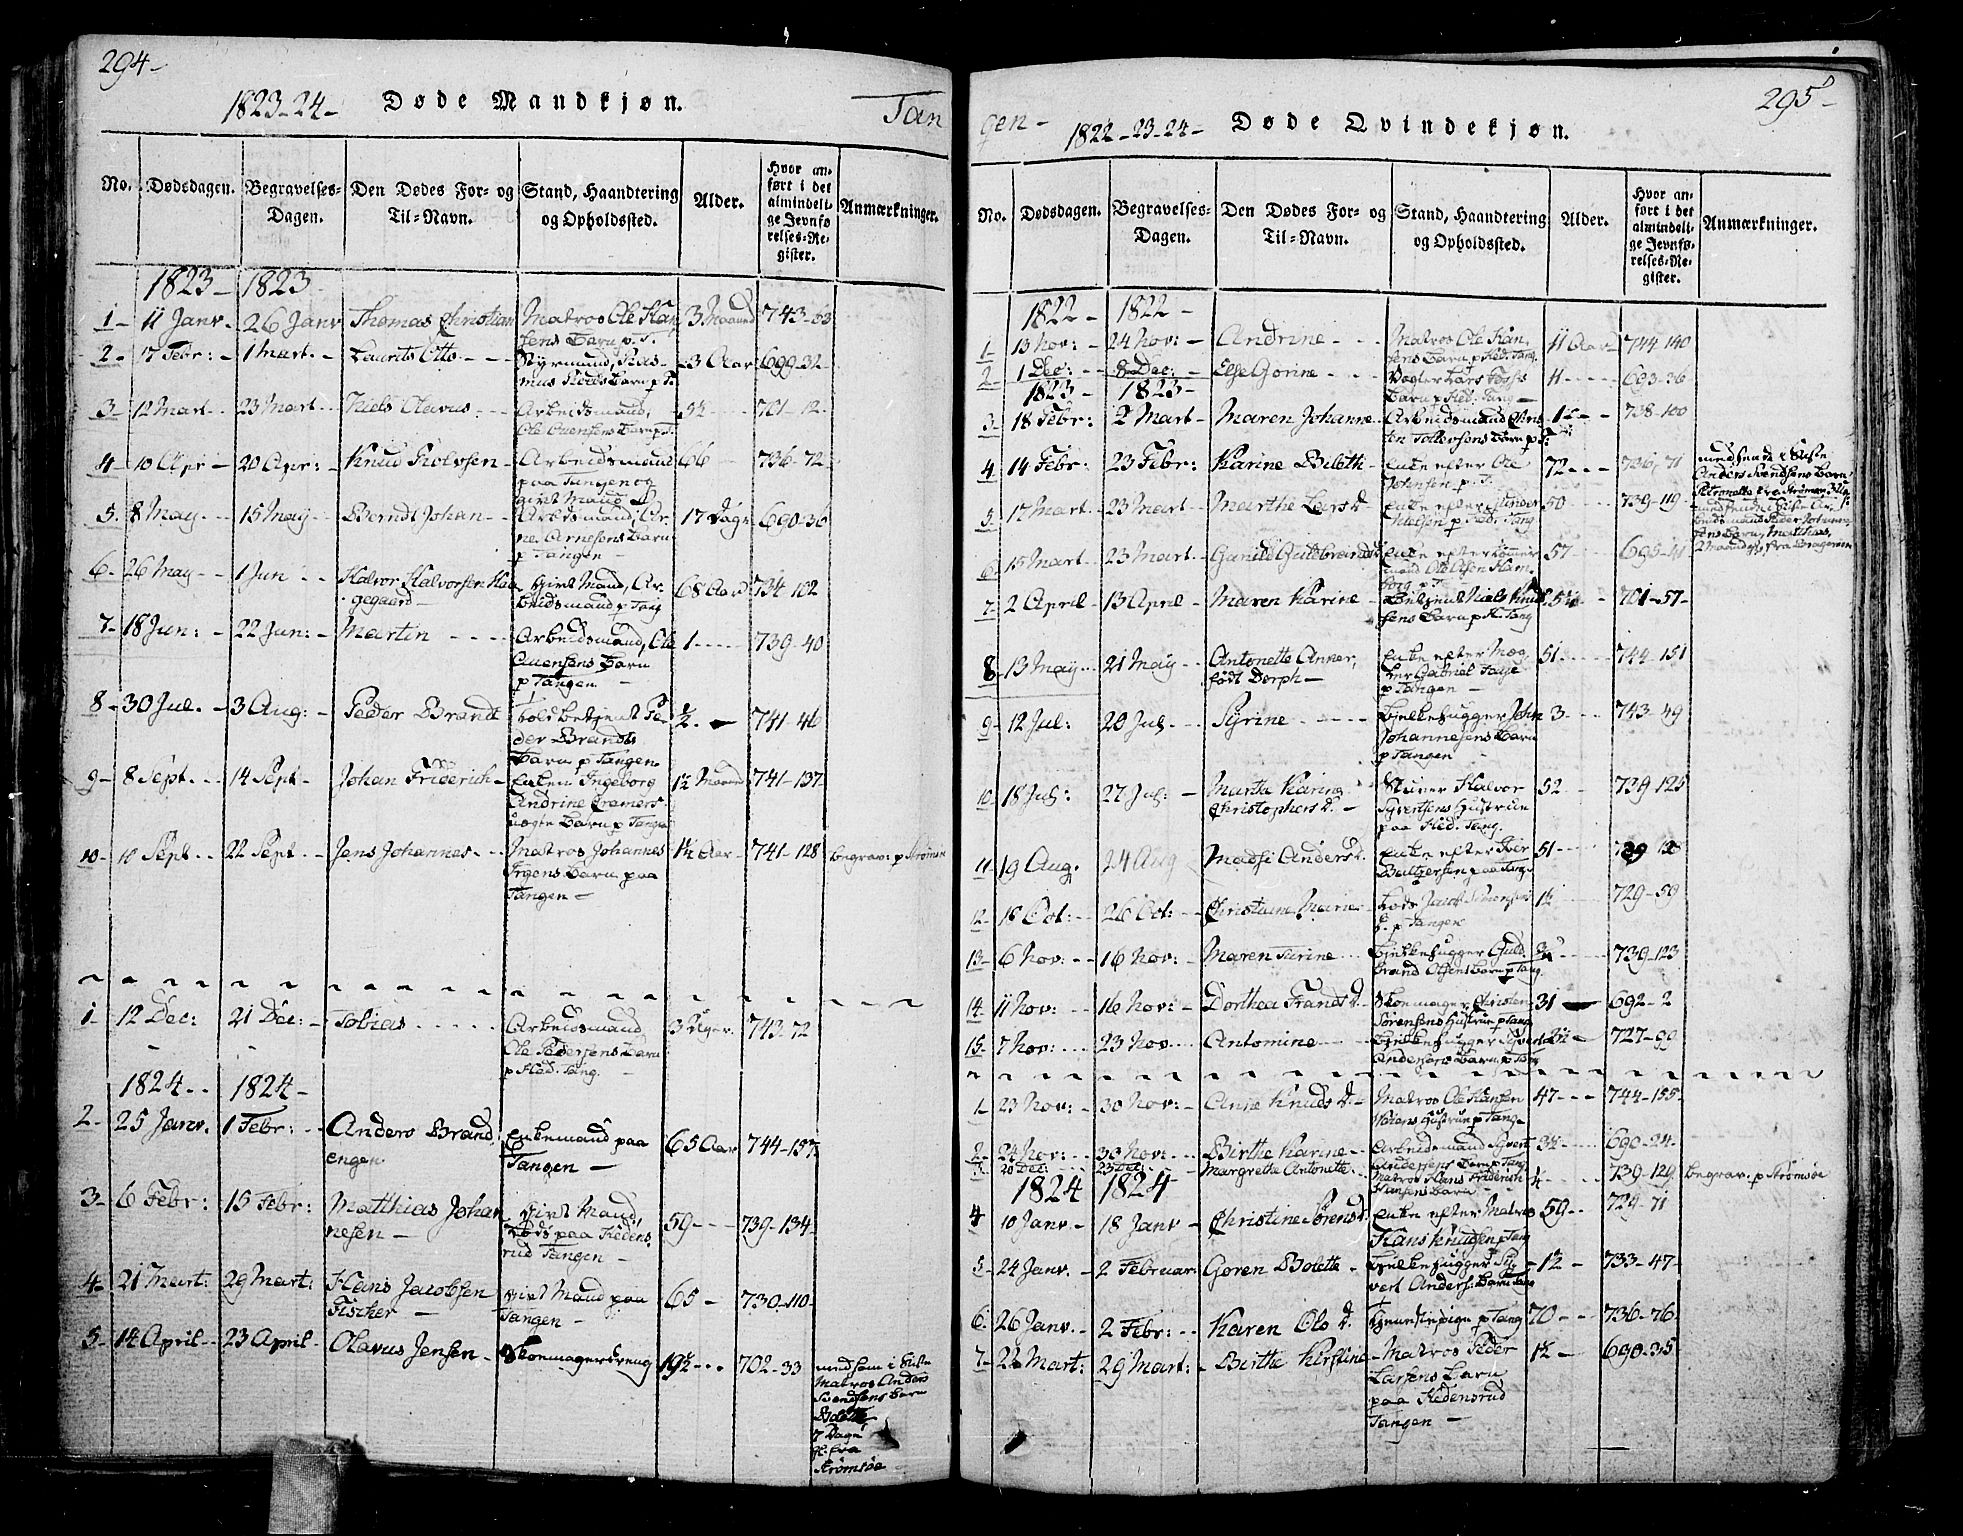 294-
1823-24- Døde Mandkjøn. Tan
No. Dødsdagen. Begravelses-Dagen. Den Dødes For- og Til-Navn. Stand, Haandtering og Opholdssted. Alder. Hvor anført i det almindelige Jevnførelses-Register. Anmærkninger.
1823- 1823-
1- 11 Janv- 26 Janv Thomas Christian Matros Ole Hansens Barn p. T. 3 Maaned 743-53
2- 17 Febr:- 1 Mart.- Laurits Otto Styrmand, Rasmus Barn p T 3 Aar 699-32
3- 12 Mart- 23 Mart- Niels Olavus Arbeidsmand, Ole Ouensens Barn p T. 5½ 701-12
4- 10 Apr- 20 Apr:- Knud Holvsen- Arbeidsmand paa Tangen og givt Mand 66 736-72
5- 8 May- 15 May- Berndt Johan- Arbdsmand, Arne Arnesens Barn p Tangen- 17 Dage 690-36
6- 26 May- 1 Jun Halvor Halvorsen Hagegaard- givt Mand, Arbeidsmand p Tang 68 Aar 734-102
7- 18 Jun:- 22 Jun:- Martin Arbeidsmand, Ole Ouensens Barn p Tangen- 1 739-40
8- 30 Jul.- 3 Aug:- Peder Brandt Toldbetjent Peder Brandts Barn p Tangen ½ 741-46
9- 8 Sept.- 14 Sept- Johan Friderich- Enken Ingeborg Andrine Cramers uægte Barn p Tangen 1½ Maaned 741-137
10- 10 Sept- 22 Sept- Jens Johannes Matros Johannes Barn paa Tangen- 1½ Aar- 741-128 begrav: p Strømsøe
1- 12 Dec: 21 Dec:- Tobias Arbeidsmand Ole Pedersens Barn p Hed. Tang.- 3 Uger. 743-72
1824- 1824-
2- 25 Janv. 1 Febr: Anders Brandengen Enkemand paa Tangen- 65 Aar 744-157
3- 6 Febr: 15 Febr: Matthias Johannesen- givt Mand, Lods paa Hedensrud Tangen- 59 739-134
4- 21 Mart: 29 Mart: Hans Jacobsen Fischer- givt Mand paa Tangen- 65- 730-110
5- 14 April- 23 April- Olavus Jensen- Skomagerdreng 19½ 702-33 med sam i Kiste Matros Anders Svendsens Barn Bolette 7 Dage gl. fra Strømsøe-
295-
gen- 1822-23-24- Døde Qvindekjøn.
No. Dødsdagen. Begravelses-Dagen. Den Dødes For- og Til-Navn. Stand, Haandtering og Opholdssted. Alder. Hvor anført i det almindelige Jevnførelses-Register. Anmærkninger.
1822- 1822-
1- 13 Nov: 24 Nov:- Andrine Matros Ole Hansens Barn p Hed. Tang. 11 Aar 744-140
2- 1 Dec: 8 Dec: Else Gorine Barn p Hed. Tang- 4 693-36
1823- 1823-
3- 18 Febr: 2 Mart- Maren Johanne Arbeidsmand Barn p T. 738-100
4- 14 Febr: 23 Febr: Karine Bileth- Enke efter Ole Johnsen p. T. 72 736-71
5- 17 Mart 23 Mart- Marthe Larsd. Enke efter Gunder Nielsen p Hed. Tang 50 739-119
6- 15 Mart 23 Mart- Gunild Guldbrandsd. Enke efter Tømmermand Ole Olsen p T 57 695-41
7- 2 April- 13 April- Maren Karine- Niels Knudsens Barn p H. Tang 701-57-
8- 13 May 21 May- Antonette Anner, født Dorph- Enke efter Mægler Gabriel Faye p Tangen- 51 744-151
9- 12 Jul: 20 Jul- Syrine Bjelkehugger John Johannesens Barn p Tangen- 3 743-49
10- 18 Jul: 27 Jul:- Marta Karine Christophersd.- Halvor Syvertsens Hustrue paa Hed. Tang. 52 739-125
11- 19 Aug: 24 Aug Madsi Andersd. Enke efter Baltzersen paa Tang. 51
12- 18 Oct:- 26 Oct: Christiane Marie- Lods Jacob Simonsens B. p Tangen 729-50
13- 6 Nov. 16 Nov:- Maren Turine Bjelkehugger Guldbrand Olsens Barn p Tang. 739-123
14- 11 Nov: 16 Nov:- Dorthea Frandsd.- Skoemager Christen Sørensens Hustrue p Tang 31 692-2
15- 7 Nov: 23 Nov Antomine Bjelkehugger Syvert Andersens Barn p Tang 727-99
1- 23 Nov: 30 Nov:- Anne Knudsd.- Matros Ole Hansen Hustrue p Tang- 47 744-155
2- 24 Nov: 30 Nov: Birthe Karine- Arbeidsmand Syvert Andersens Barn p Tang 3½ 690-24
3- 20 Dec: 23 Dec: Margrethe Antonette Matros Hans Friderich Hansens Barn 4 739-129 begrav. p Strømsøe
1824 1824
4 10 Janv.- 18 Janv- Christine Sørensd. Enke efter Matros Hans Knudsen p Tang 59 724-71
5- 24 Janv. 2 Februar: Goren Bolette- Bjelkehugger Syvert Anders: Barn Tang 1½- 733-47
6. 26 Janv.- 2 Febr: Karen Olsd. p Tang 70 736-76
7- 22 Mart: 29 Mart:- Birthe Kirstine- Matros Peder Larsens Barn paa Hedensrud Tangen- 1½- 690-35